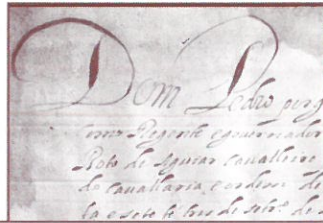 Dom Pedro por g
como Regente e governador
Roto de Aguiar cavalleiro
da cavallaria, e ordem de
ta e sete te